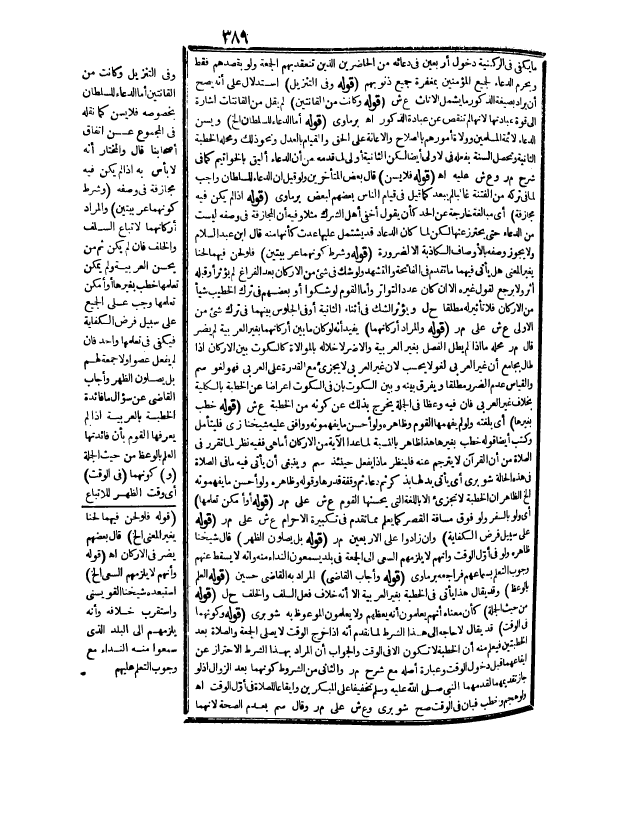 ٣٨٩
ما يكفى فى الركنية دخول أربعين فى دعائه من الحاضرين الذين تنعقد بهم الجمعة ولو بقصدهم فقط
ويحرم الدعاء لجميع المؤمنين بمغفرة جميع ذنوبهم (قوله وفى التنزيل) استدلال على أنه يصح
أن يراد بصيغة الذكور ما يشمل الاناث ع ش (قوله وكانت من القانتين) لم يقل من القانتات اشارة
الى قوة عبادتها لانها لم تنقص عن عبادة الذكور اه برماوى (قوله أما الدعاء للسلطان الخ) ويسن
الدعاء لائمة المسلمين وولاة أمورهم بالصلاح والاعانة على الحق والقيام بالعدل ونحو ذلك ومحله الخطبة
الثانية وتحصل السنة بفعله فى الاولى أيضا لكن الثانية أولى لما قدمه من أن الدعاء أليق بالخواتيم كما فى
شرح م ر و ع ش عليه اه (قوله فلا يسن) قال بعض المتأخرين ولو قيل ان الدعاء للسلطان واجب
لما فى تركه من الفتنة غالبا لم يبعد كما قيل فى قيام الناس بعضهم لبعض برماوى (قوله اذا لم يكن فيه
مجازفة) أى مبالغة خارجة عن الحد كأن يقول أخفى أهل الشرك مثلا وفيه أن المجازفة فى وصفه ليست
من الدعاء حتى يحترز عنها لكن لما كان الدعاء قد يشتمل عليها عدت كأنها منه قال ابن عبد السلام
ولا يجوز وصفه بالأوصاف الكاذبة الا لضرورة (قوله وشرط كونهما عربيتين) فلو لحن فيهما لحنا
يغير المعنى هل يأتى فيهما ما تقدم فى الفاتحة والتشهد ولو شك فى شئ من الاركان بعد الفراغ لم يؤثر أو قبله
أثر ولا يرجع لقول غيره الا ان كان عدد التواتر وأما القوم لو شكوا أو بعضهم فى ترك الخطيب شيأ
من الاركان فلا تأثير له مطلقا ح ل ويؤثر الشك فى أثناء الثانية أو فى الجلوس بينهما فى ترك شئ من
الاولى ع ش على م ر (قوله والمراد أركانهما) يفيد أنه لو كان ما بين أركانهما بغير العربية لم يضر
قال م ر محله ما اذا لم يطل الفصل بغير العربية والا ضر لاخلاله بالموالاة كالسكوت بين الاركان اذا
طال بجامع أن غير العربى لغو لا يحسب لان غير العربى لا يجزئ مع القدرة على العربى فهو لغو سم
والقياس عدم الضرر مطلقا ويفرق بينه وبين السكوت بان فى السكوت اعراضا عن الخطبة بالكلية
بخلاف غير العربى فان فيه وعظا فى الجملة يخرج بذلك عن كونه من الخطبة ع ش (قوله خطب
بغيرها) أى بلغته ولو لم يفهمها القوم وظاهره ولو أحسن ما يفهمونه ووافق عليه شيخنا زى فليتأمل
وكتب أيضا قوله خطب بغيرها هذا ظاهر بالنسبة لما عدا الآية من الاركان أما هى ففيه نظر لما تقرر فى
الصلاة من أن القرآن لا يترجم عنه فلينظر ماذا يفعل حينئذ سم وينبغى أن يأتى فيه ما فى الصلاة
فى هذه الحالة شوبرى أى يأتى بدلها بذكر ثم دعاء ثم وقفة قدرها وقوله وظاهره ولو أحسن ما يفهمونه
الخ الظاهر ان الخطبة لا تجزئ الا باللغة التى يحسنها القوم ع ش على م ر (قوله أو أمكن تعلمها)
أى ولو بالسفر ولو فوق مسافة القصر كما يعلم مما تقدم فى تكبيرة الاحرام ع ش على م ر (قوله
على سبيل فرض الكفاية) وان زادوا على الاربعين م ر (قوله بل يصلون الظهر) قال شيخنا
ظاهره ولو فى أول الوقت وانهم لا يلزمهم السعى الى الجمعة فى بلد يسمعون النداء منه وانه لا يسقط عنهم
وجوب التعلم بسماعهم فراجعه برماوى (قوله وأجاب القاضى) المراد به القاضى حسين (قوله العلم
بالوعظ) وقد يقال هذا يأتى فى الخطبة بغير العربية الا أنه خلاف فعل السلف والخلف ح ل (قوله
من حيث الجملة) كأن معناه أنهم يعلمون أنه يعظهم ولا يعلمون الموعوظ به شوبرى (قوله وكونهما
فى الوقت) قد يقال لا حاجة الى هذا الشرط لما تقدم أنه اذا خرج الوقت لا يصلى الجمعة والصلاة بعد
الخطبتين فيعلم منه أن الخطبة لا تكون الا فى الوقت والجواب أن المراد بهذا الشرط الاحتراز عن
ايقاعهما قبل دخول الوقت وعبارة أصله مع شرح م ر والثانى من الشروط كونهما بعد الزوال اذ لو
جاز تقديمهما لقدمهما النبى صلى الله عليه وسلم تخفيفا على المبكرين وايقاعا للصلاة فى أول الوقت اه
ولو هجم وخطب فبان فى الوقت صح شوبرى و ع ش على م ر وقال سم بعدم الصحة لانهما
وفى التنزيل وكانت من
القانتين أما الدعاء للسلطان
بخصوصه فلا يسن كما نقله
فى المجموع عن اتفاق
أصحابنا قال والمختار أنه
لا بأس به اذا لم يكن فيه
مجازفة فى وصفه (وشرط
كونهما عربيتين) والمراد
أركانهما لاتباع السلف
والخلف فان لم يكن ثم من
يحسن العربية ولم يمكن
تعلمها خطب بغيرها أو أمكن
تعلمها وجب على الجميع
على سبيل فرض الكفاية
فيكفى فى تعلمها واحد فان
لم يفعل عصوا ولا جمعة لهم
بل يصلون الظهر وأجاب
القاضى عن سؤال ما فائدة
الخطبة بالعربية اذا لم
يعرفها القوم بأن فائدتها
العلم بالوعظ من حيث الجملة
(و) كونهما (فى الوقت)
أى وقت الظهر للاتباع
(قوله فلو لحن فيهما لحنا
يغير المعنى الخ) قال بعضهم
يضر فى الاركان اه (قوله
وأنهم لا يلزمهم السعى الخ)
استبعده شيخنا القويسنى
واستقرب خلافه وأنه
يلزمهم الى البلد الذى
سمعوا منه النداء مع
وجوب التعلم عليهم